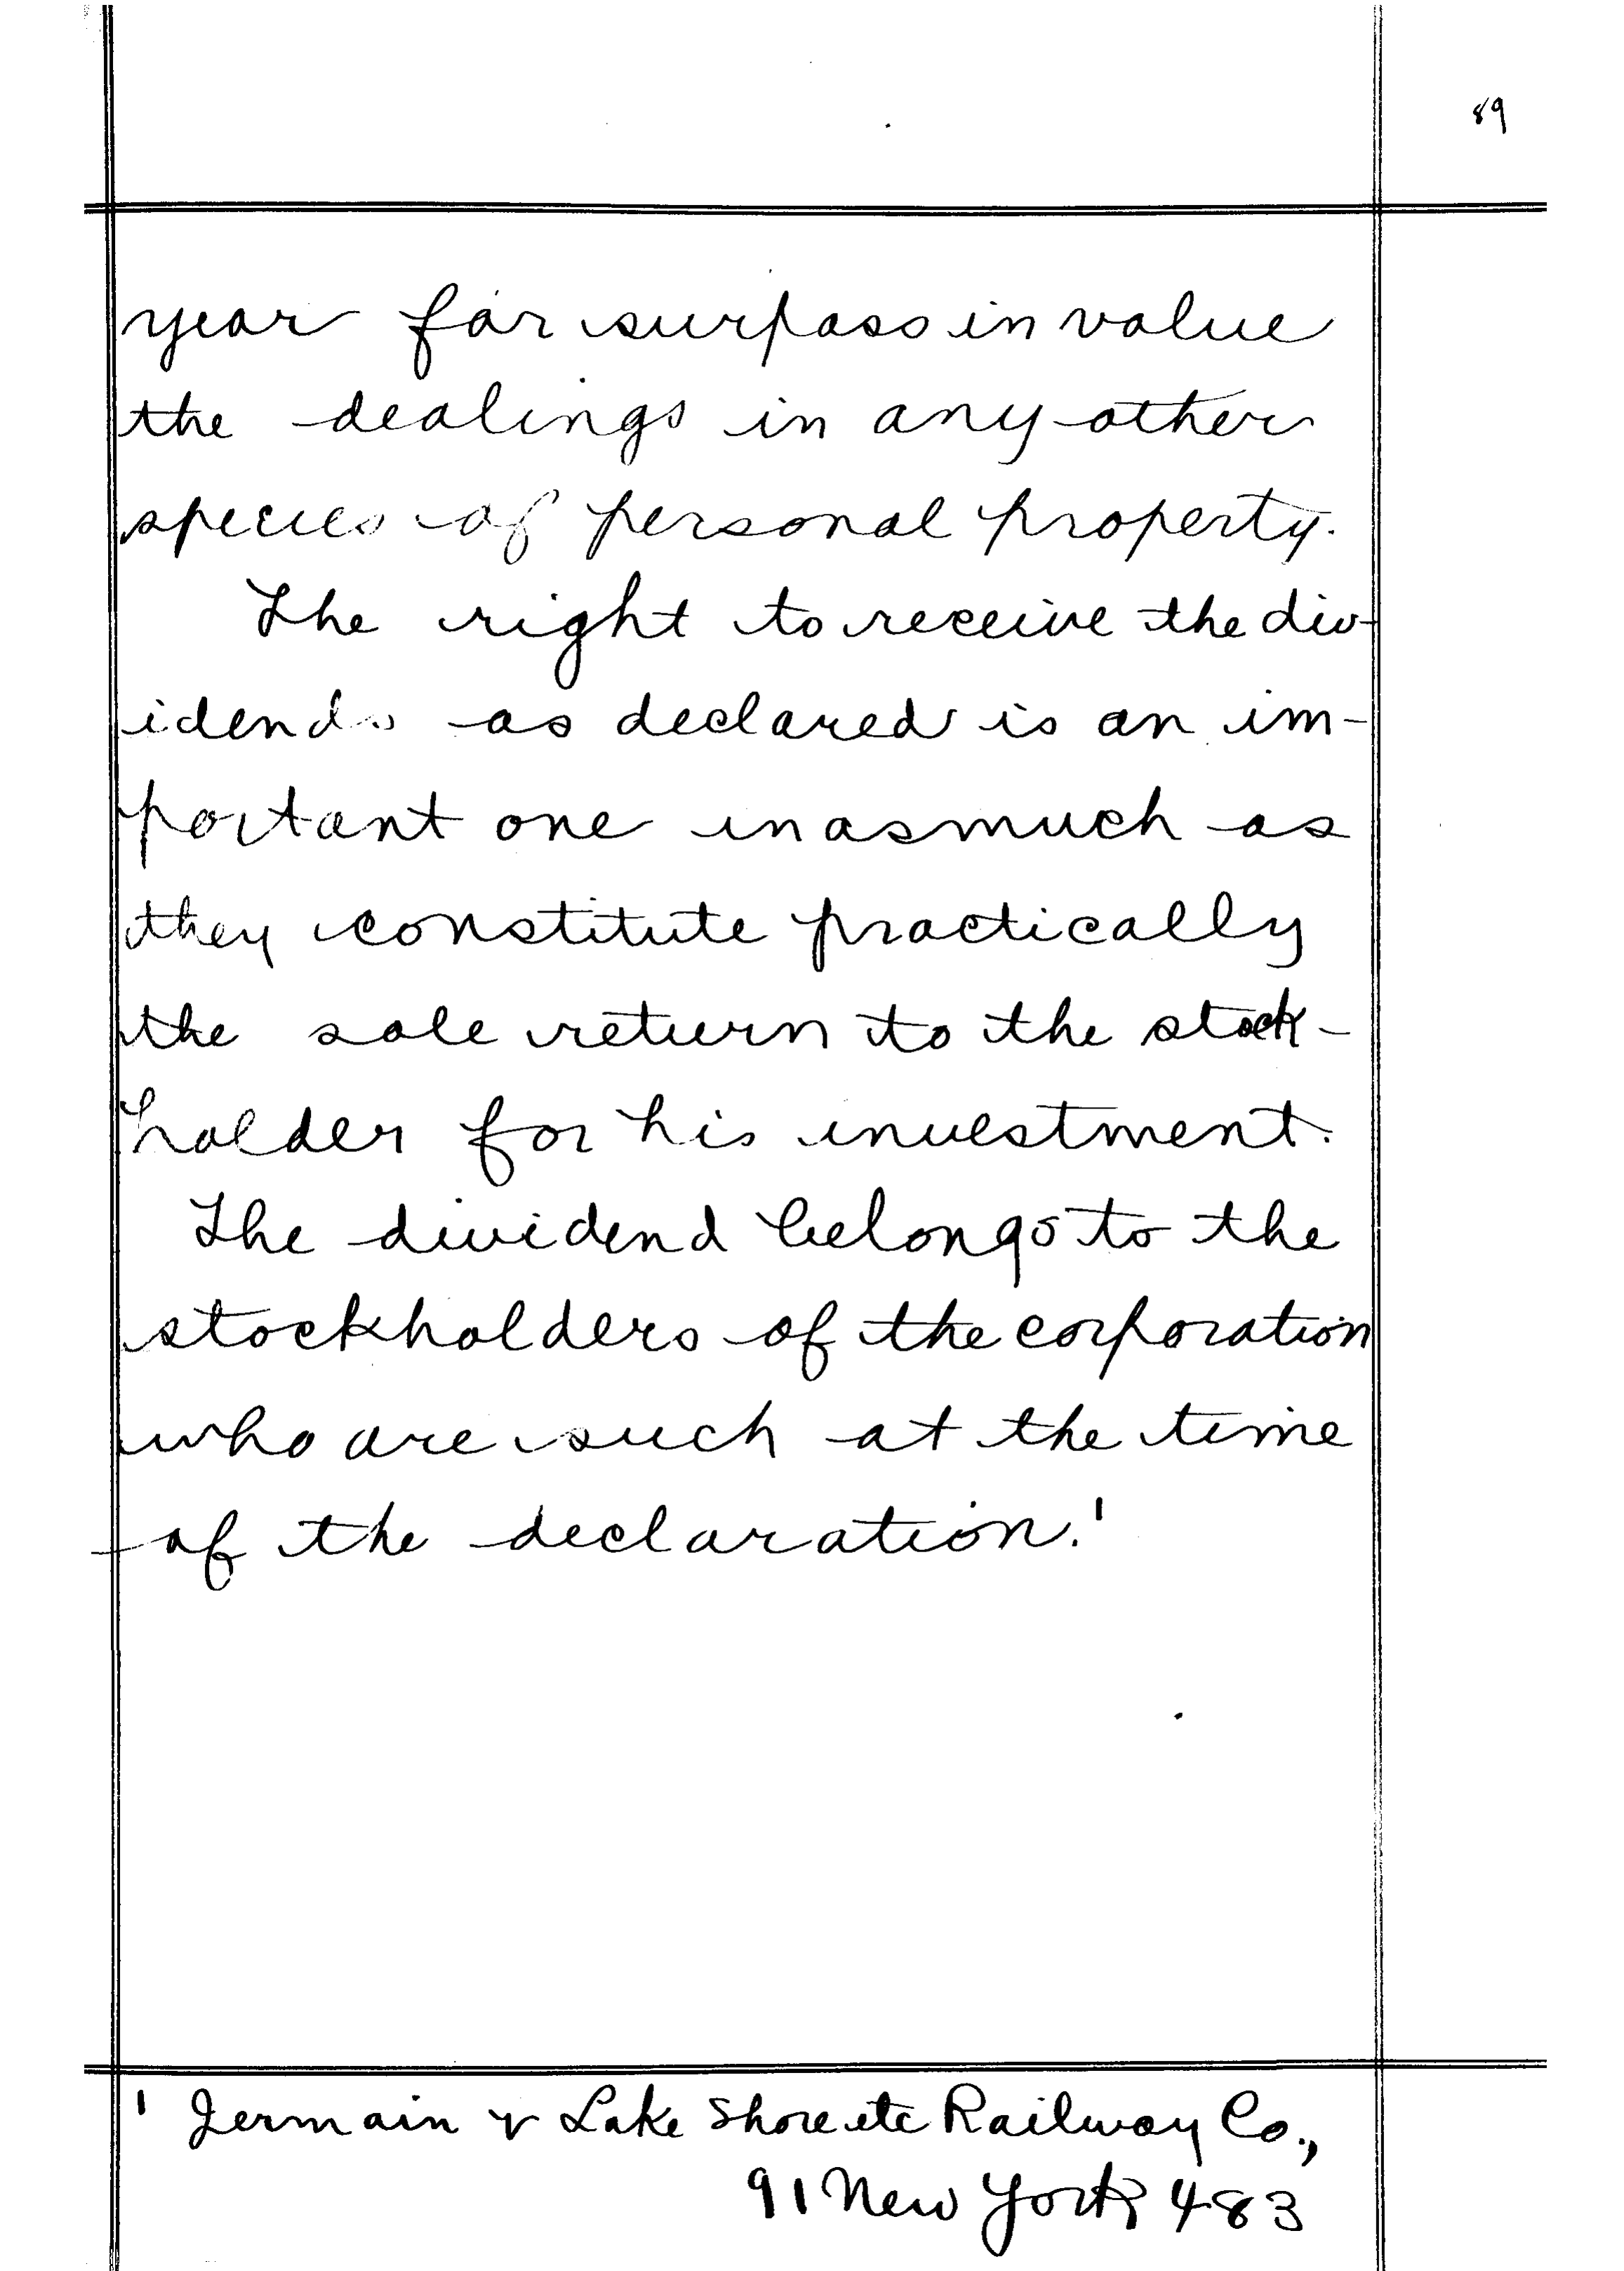 89
year far surpass in value
the dealings in any other
species of personal property.
The right to receive the div-
idends as declared is an im-
portant one inasmuch as
they constitute practically
the sole return to the stock-
holder for his investment.
The dividend belongs to the
stockholders of the corporation
who are such at the time
of the declaration.¹
¹ Jermain v Lake Shore etc Railway Co.,
91 New York 483